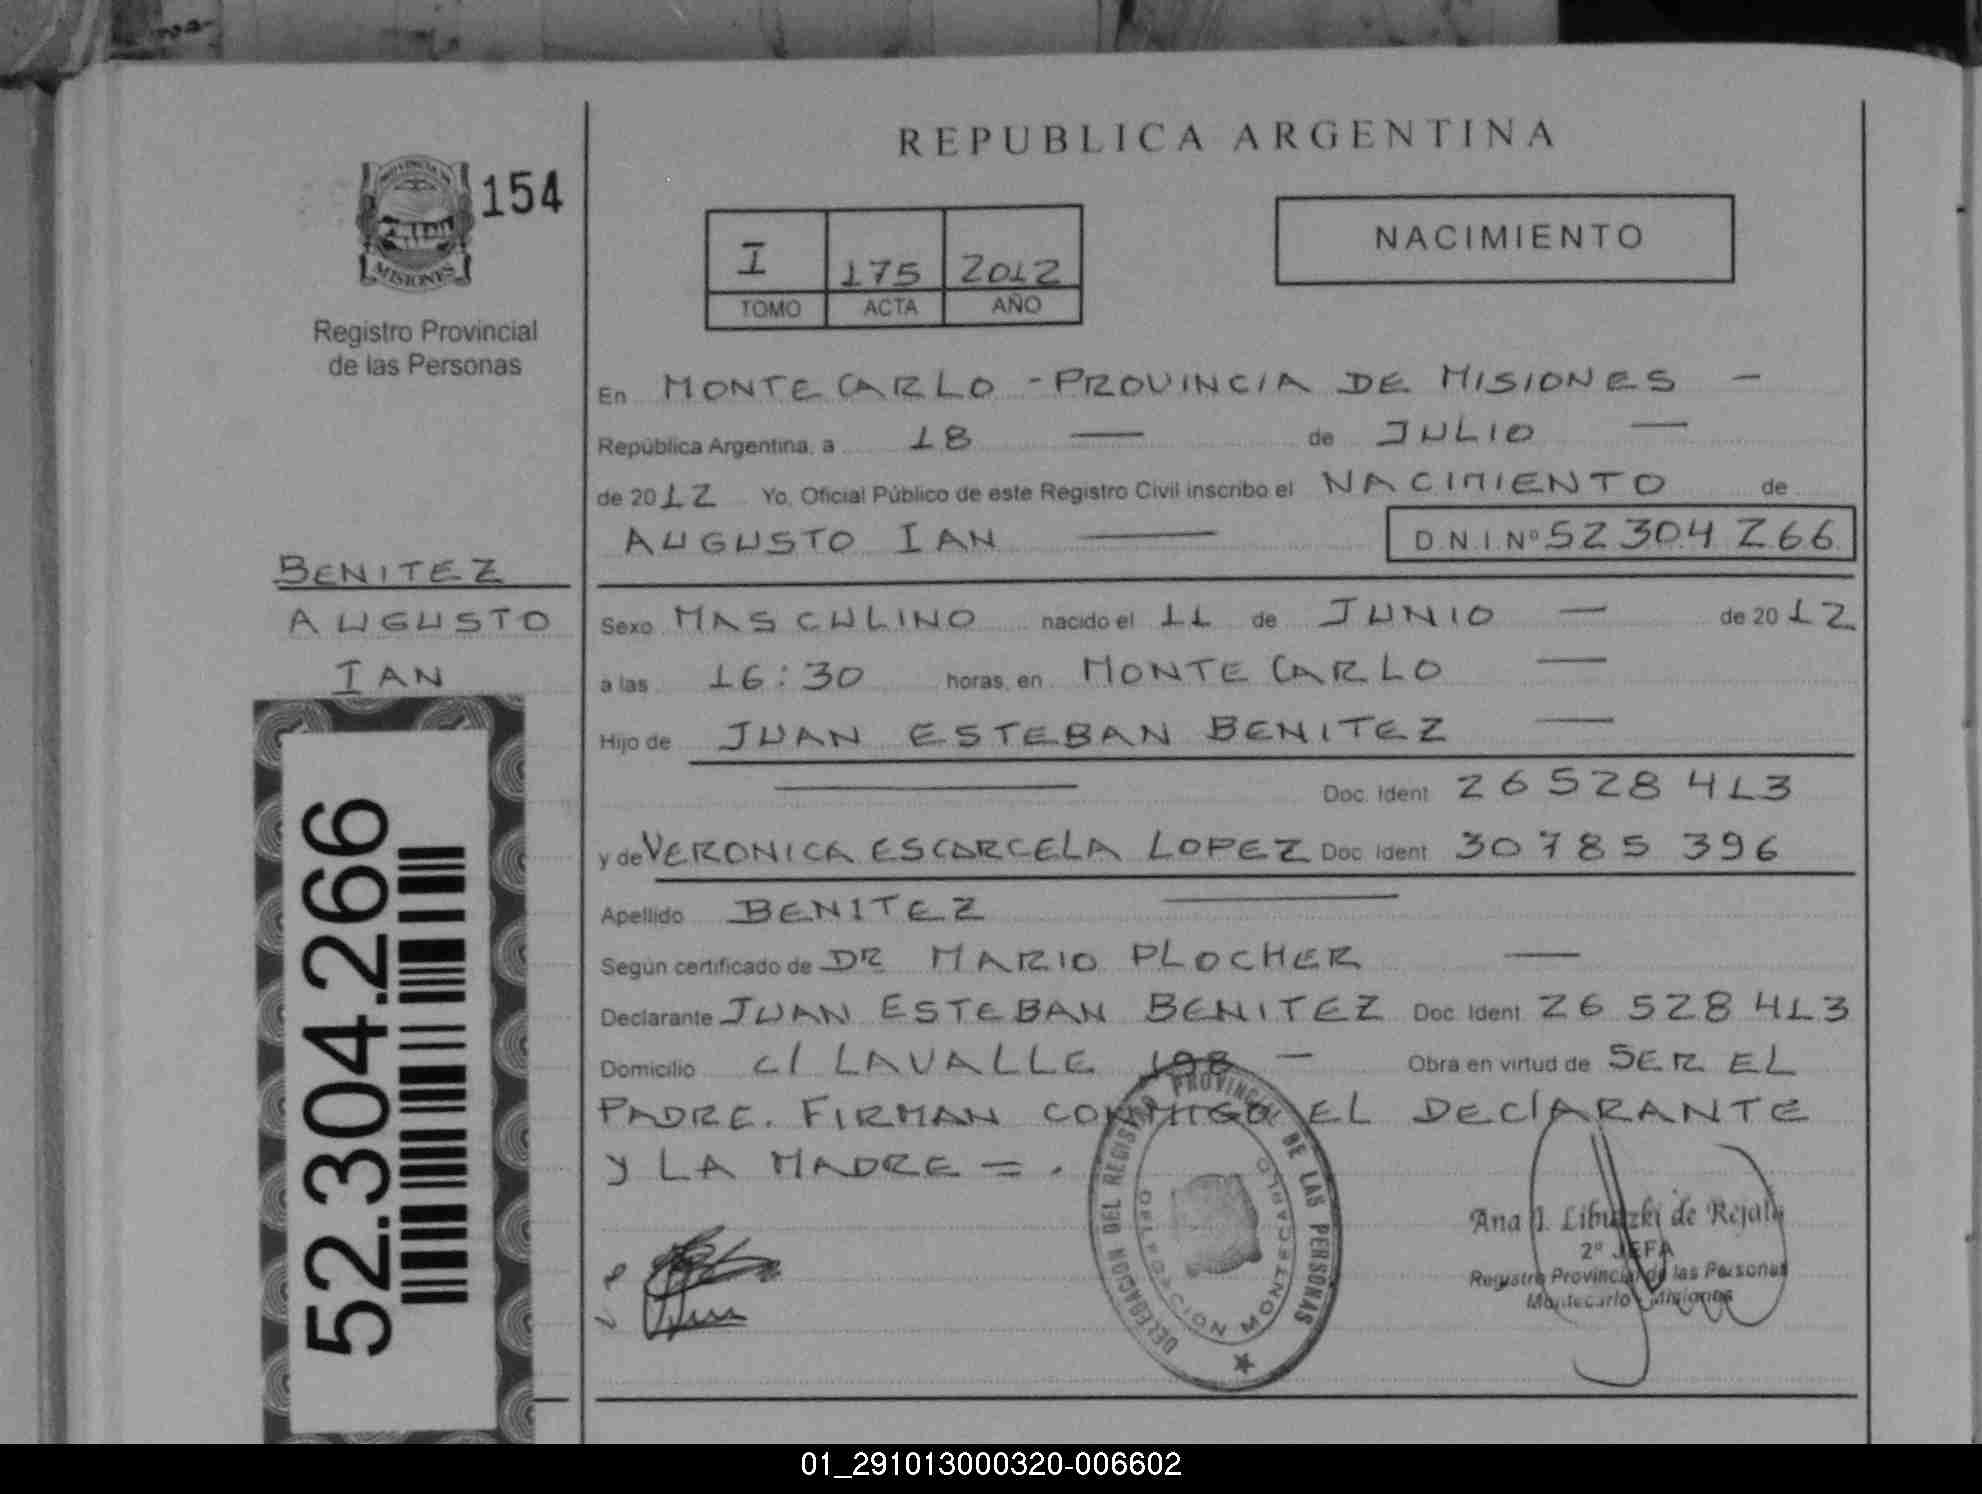 REPUBLICA ARGENTINA
PROVINCIA DE
MISIONES
154
Registro Provincial
de las Personas
I 175 2012
TOMO ACTA AÑO
NACIMIENTO
En MONTECARLO - PROVINCIA DE MISIONES -
República Argentina, a 18 — de JULIO —
de 2012 Yo, Oficial Público de este Registro Civil inscribo el NACIMIENTO de
AUGUSTO IAN — D.N.I.Nº 52 304 266
BENITEZ
AUGUSTO
IAN
Sexo MASCULINO nacido el 11 de JUNIO — de 2012
a las 16:30 horas, en MONTECARLO —
Hijo de JUAN ESTEBAN BENITEZ —
— Doc. Ident 26 528 413
y de VERONICA ESCARCELA LOPEZ Doc. Ident 30 785 396
Apellido BENITEZ —
Según certificado de DR MARIO PLOCHER —
Declarante JUAN ESTEBAN BENITEZ Doc. Ident 26 528 413
Domicilio c/ LAVALLE 198 - Obra en virtud de SER EL
PADRE. FIRMAN CONMIGO EL DEClARANTE
y LA MADRE = .
52.304.266
DELEGACION DEL REGISTRO PROVINCIAL DE LAS PERSONAS
MONTECARLO
Ana I. de
2º JEFA
Registro Provincial de las Personas
Montecarlo - Misiones
01_291013000320-006602